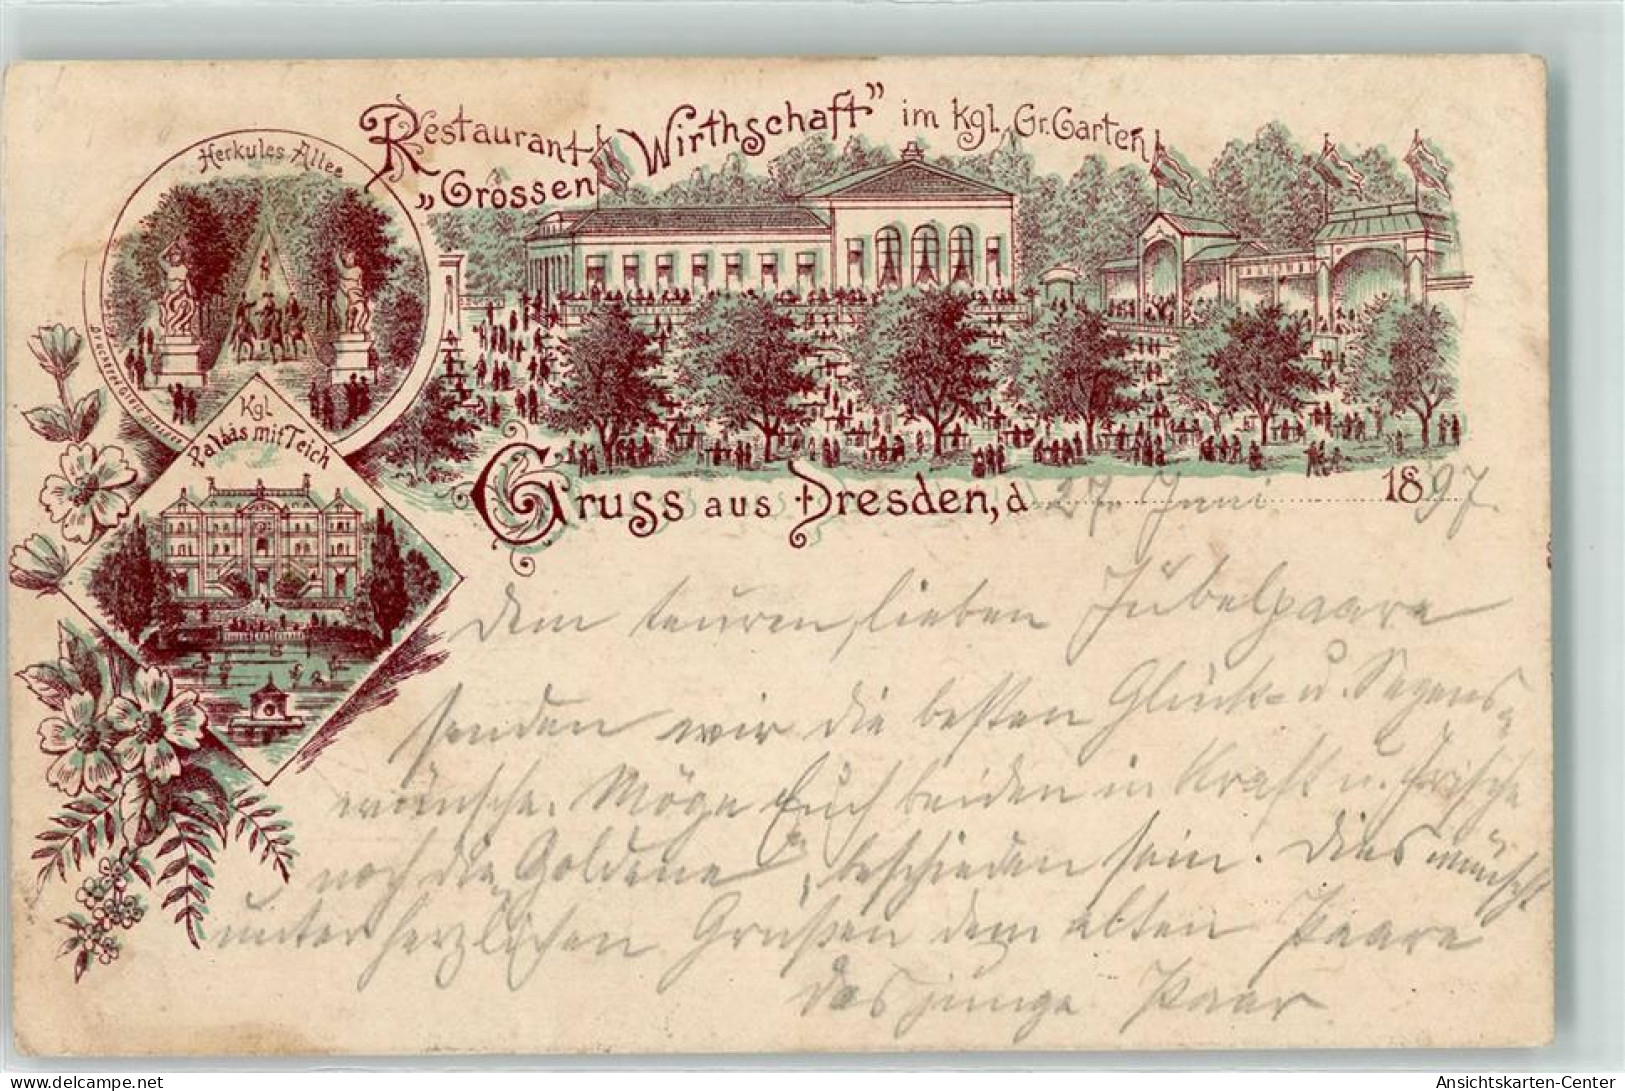 Restaurant „Grossen Wirthschaft” im kgl. Gr. Garten
Herkules Allee
Kgl.
Palais mit Teich
Gruss aus Dresden, d 27. Juni 1897.
Dem teuren, lieben Jubelpaare
senden wir die besten Glück- u. Segens-
wünsche. Möge Euch beiden in Kraft u. Frische
noch die Goldene beschieden sein. Dies wünscht
unter herzlichen Grüßen dem alten Paare
das junge Paar
Ansichtskarten-Center